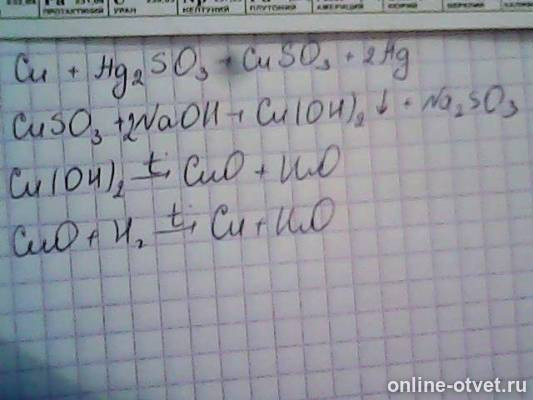 ПРОТАКТИНИЙ УРАН НЕПТУНИЙ ПЛУТОНИЙ АМЕРИЦИЙ КЮРИЙ БЕРКЛИЙ
Cu + Hg₂SO₃ → CuSO₃ + 2Hg
CuSO₃ + 2NaOH → Cu(OH)₂↓ + Na₂SO₃
Cu(OH)₂ t→ CuO + H₂O
CuO + H₂ t→ Cu + H₂O
online-otvet.ru